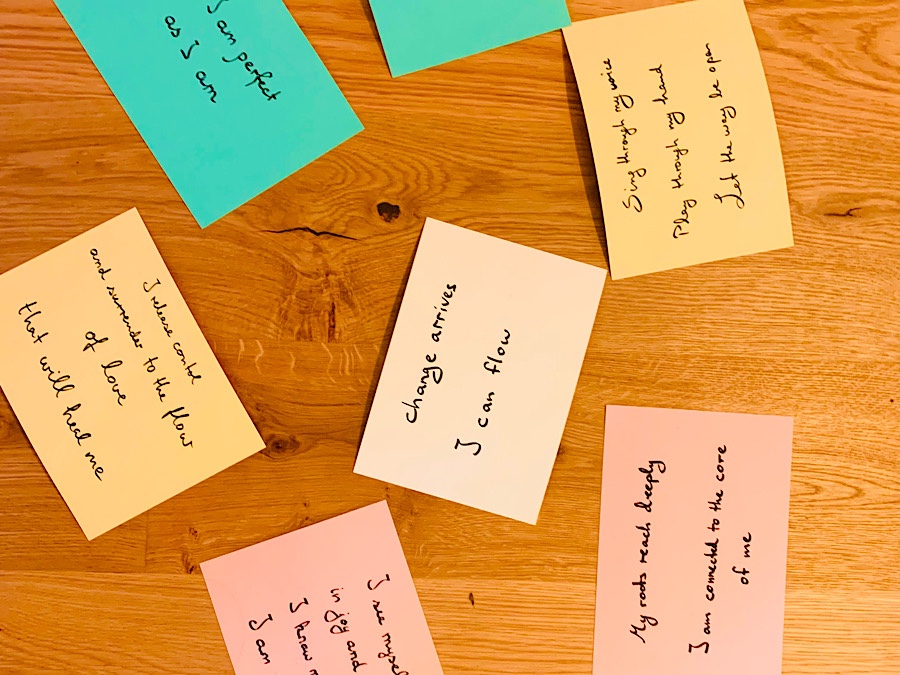 I am perfect
as I am
Sing through my voice
Play through my hand
Let the way be open
I release control
and surrender to the flow
of love
that will heal me
change arrives
I can flow
My roots reach deeply
I am connected to the core
of me
I see
in joy and
I know
I am